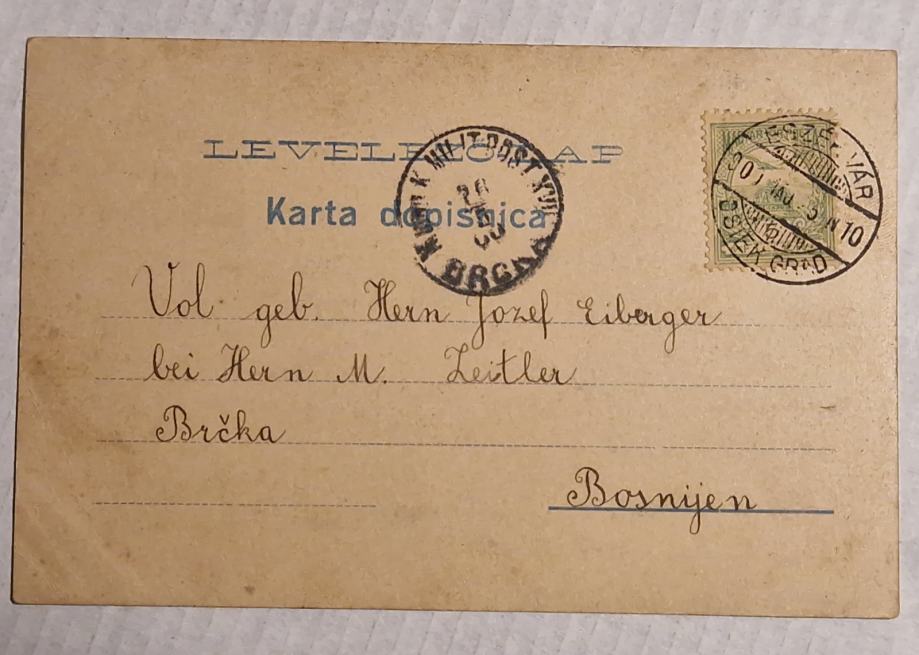 LEVELEZŐ-LAP
Karta dopisnica
K. UND K. MILIT. POST XVIII
BRČKA
ESZÉK VÁR
OSIEK GRAD
Vol geb. Hern Jozef Eiberger
bei Hern M. Zeitler
Brčka
Bosnijen